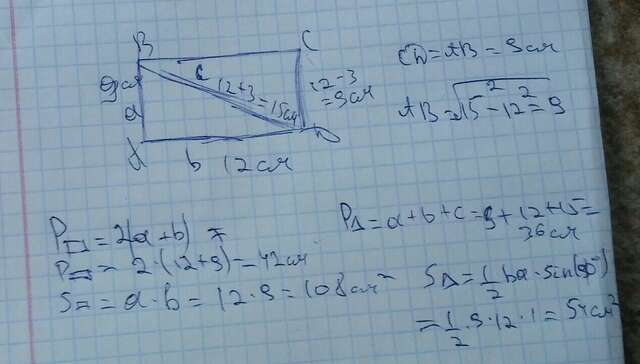 B
C
9см
c
12+3
=15см
12-3
=9см
a
A
D
b 12см
CD=AB=9см
AB=√15²-12²=9
P▭=2(a+b)=
P▭=2·(12+9)=42см
S▭=a·b=12·9=108см²
P△=a+b+c=9+12+15=
36см
S△=1/2 ba·sin(90°)
=1/2·9·12·1=54см²